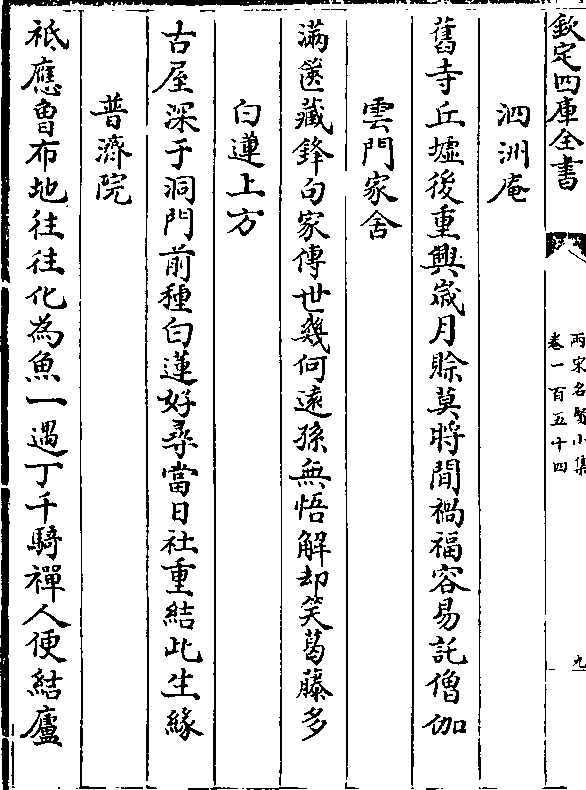 欽定四庫全書
兩宋名賢小集
卷一百五十四
九
泗洲庵
舊寺丘墟後重興歲月賒莫將間禍福容易託僧伽
雲門家舍
滿篋藏鋒句家傳世幾何遠孫無悟解却笑葛藤多
白蓮上方
古屋深于洞門前種白蓮好尋當日社重結此生緣
普濟院
祗應魯布地往往化為魚一遇丁千騎禪人便結廬